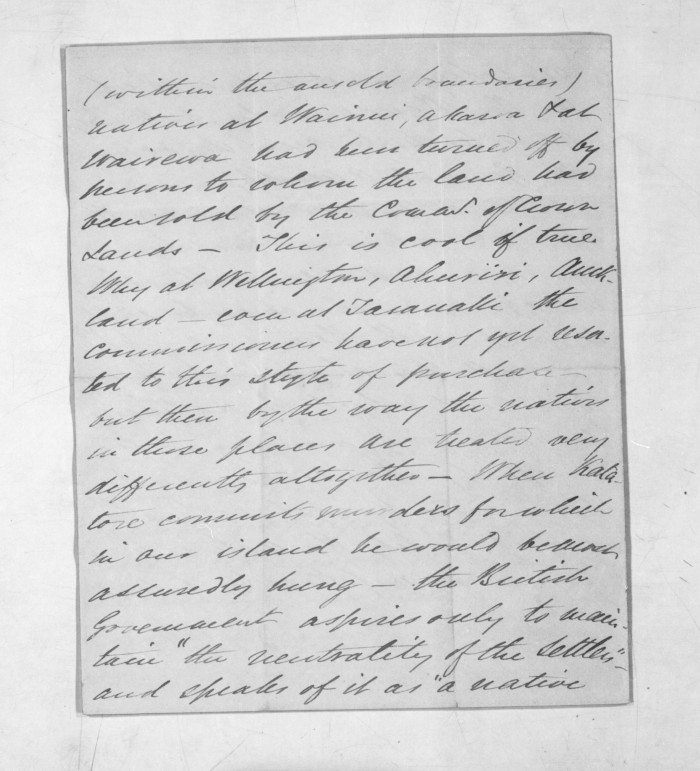 (within the unsold boundaries)
natives at Wainui, Akaroa & at
Wairewa had been turned off by
persons to whom the land had
been sold by the Comd. of Crown
Lands — This is cool if true.
Why at Wellington, Ahuriri, Auck-
land — even at Taranaki the
commissioners have not yet resor-
ted to this style of purchase —
but then by the way the natives
in those places are treated very
differently altogether — When Kata-
tore commits murders for which
in our island he would be most
assuredly hung — the British
Government aspires only to main-
tain "the neutrality of the settlers" —
and speaks of it as "a native